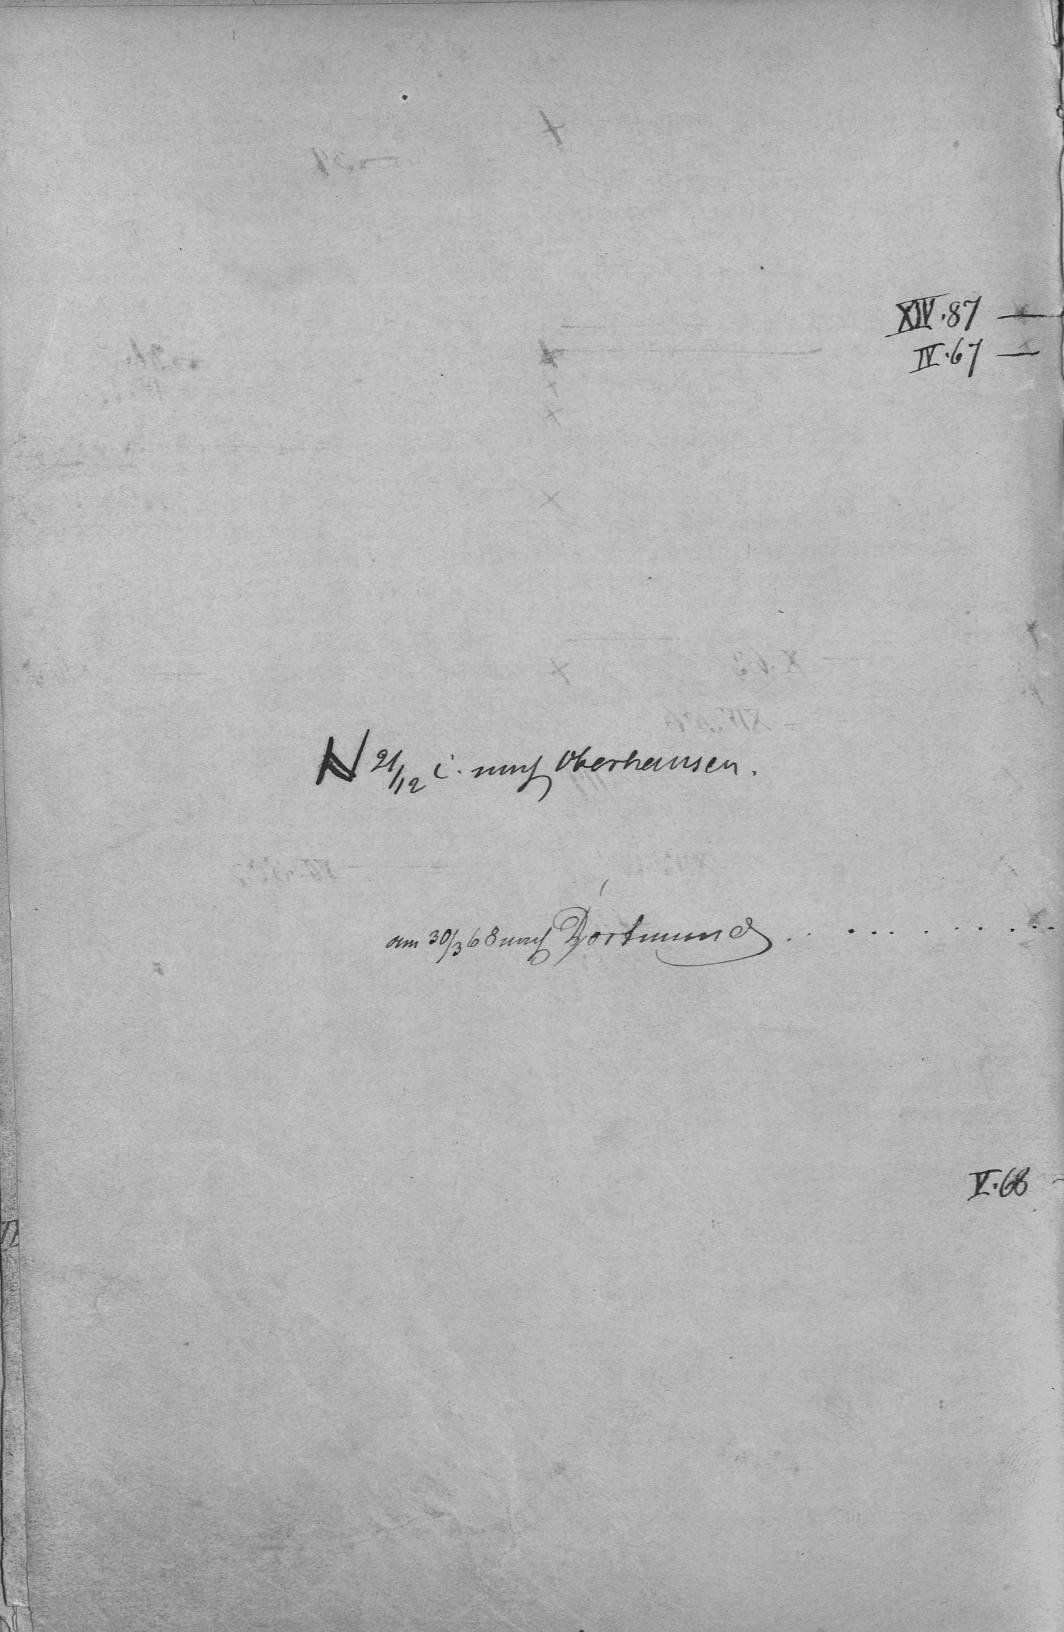 XIV. 87 —
IV. 67 —
N 21/12 c. nach Oberhausen.
am 30/3 68 nach Dortmund . . . . . . . . . .
V. 68 -